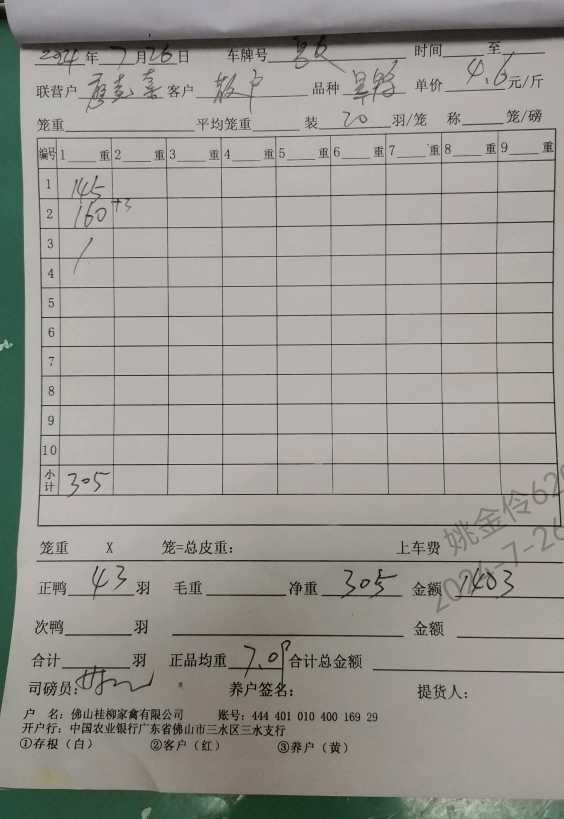 2024年7月26日 车牌号 时间 至
联营户 客户 散户 品种 旱鸭 单价 4.6元/斤
笼重 平均笼重 装 20 羽/笼 称 笼/磅
编号 1 重 2 重 3 重 4 重 5 重 6 重 7 重 8 重 9 重
1 145
2 160+3
3
4
5
6
7
8
9
10
小计 305
笼重 X 笼=总皮重: 上车费
正鸭 43 羽 毛重 净重 305 金额 1403
次鸭 羽 金额
合计 羽 正品均重 7.09 合计总金额
司磅员: 养户签名: 提货人:
户 名: 佛山桂柳家禽有限公司 账号: 444 401 010 400 169 29
开户行: 中国农业银行广东省佛山市三水区三水支行
①存根(白) ②客户(红) ③养户(黄)
姚金伶62
2024-7-26